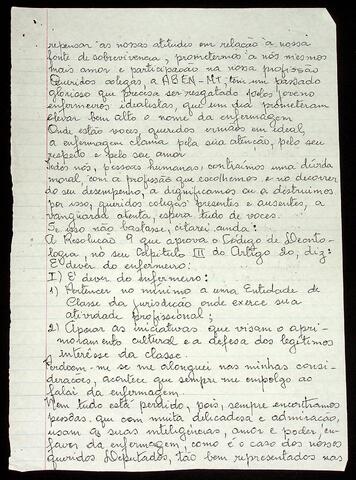 repensar as nossas atitudes em relação à nossa
fonte de sobrevivencia, prometermos à nós mesmos
mais amor e participação na nossa profissão
Queridos colegas, a ABEN-MT, tem um passado
glorioso que precisa ser resgatado pelos jovens
enfermeiros idealistas, que um dia prometeram
elevar bem alto o nome da enfermagem
Onde estão voces, queridos irmãos em ideal,
a enfermagem clama pela sua atenção, pelo seu
respeito e pelo seu amor
Todos nós, pessoas humanas, contraímos uma dívida
moral, com a profissão que escolhemos e no decorrer
do seu desempenho, a dignificamos ou a destruimos
por isso, queridos colegas presentes e ausentes, a
vanguarda atenta, espera tudo de voces.
Se isso não bastasse, citarei ainda:
A Resolução 9 que aprova o Código de Deonto-
logia, no seu Capítulo III do Artigo 3o, diz:
E dever do enfermeiro:
I) E' dever do enfermeiro:
1) Pertencer no mínimo a uma Entidade de
Classe da jurisdição onde exerce sua
atividade profissional;
2) Apoiar as iniciativas que visam o apri-
moramento cultural e a defesa dos legítimos
interêsse da classe.
Perdoem-me se me alonguei nas minhas consi-
derações, acontece que sempre me empolgo ao
falar da enfermagem.
Nem tudo está perdido, pois, sempre encontramos
pessoas que com muita delicadesa e admiração,
usam as suas inteligências, amor e poder, em
favor da enfermagem, como é o caso dos nossos
queridos Deputados, tão bem representados nas